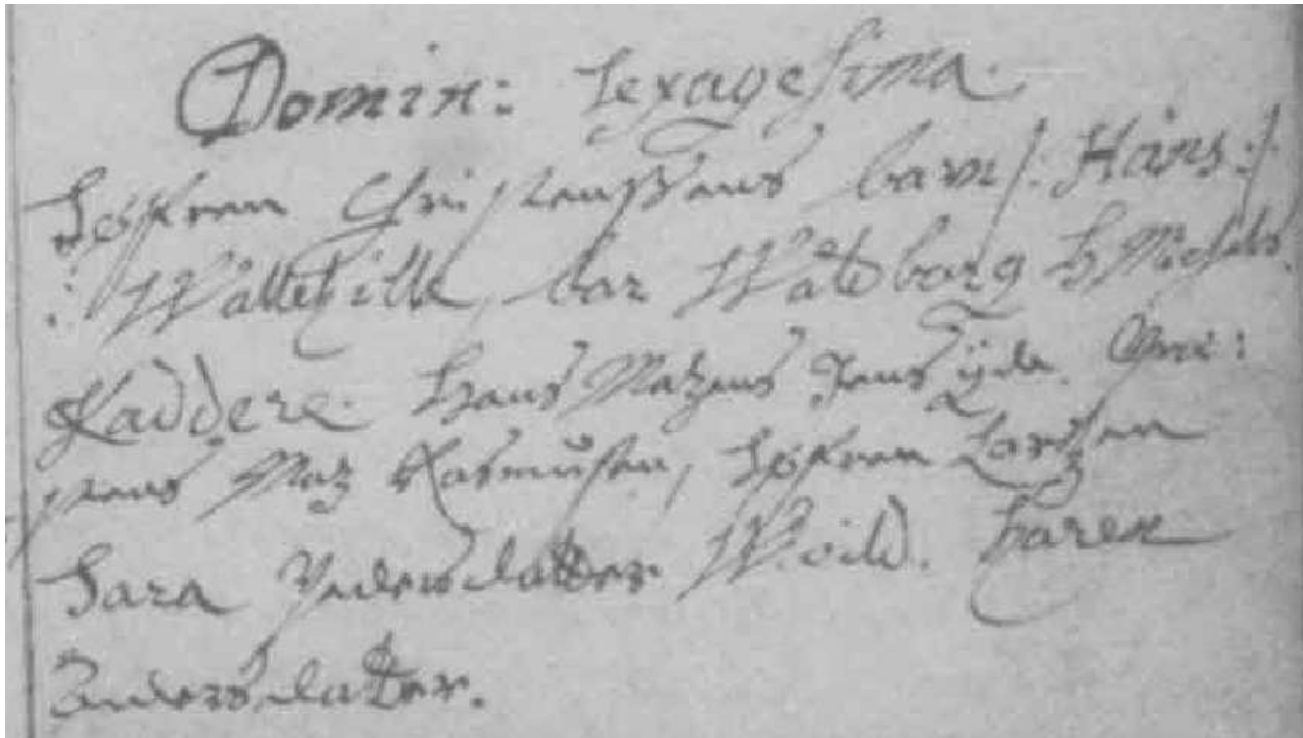 Domin: Sexagesima.
Søfren Christenssens barn /: Hans :/
:/ Wattefilk, bar Wateborg H Michels
Faddere. Hans Matzens Jens Øvi:
stens Matz Rasmusen, Søfren Lartzen
Sara Peders datter Woild. Karen
Anders datter.